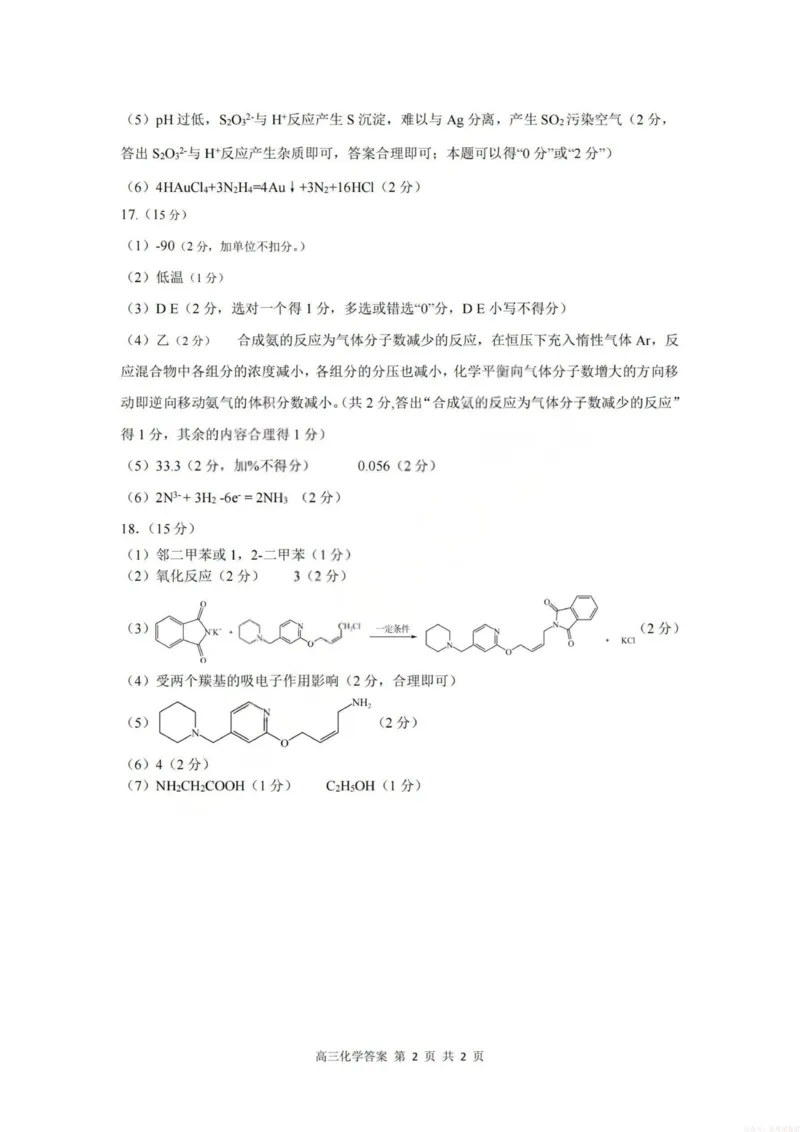 （5）pH过低，S₂O₃²⁻与 H⁺反应产生S沉淀，难以与 Ag 分离，产生SO₂污染空气（2 分，
答出 S₂O₃²⁻与 H⁺反应产生杂质即可，答案合理即可；本题可以得“0 分”或“2 分”）
（6）4HAuCl₄+3N₂H₄=4Au↓+3N₂+16HCl（2 分）
17.（15 分）
（1）-90（2 分，加单位不扣分。）
（2）低温（1 分）
（3）D E（2 分，选对一个得 1 分，多选或错选“0”分，D E 小写不得分）
（4）乙（2 分） 合成氨的反应为气体分子数减少的反应，在恒压下充入惰性气体 Ar，反
应混合物中各组分的浓度减小，各组分的分压也减小，化学平衡向气体分子数增大的方向移
动即逆向移动氨气的体积分数减小。（共 2 分,答出“合成氨的反应为气体分子数减少的反应”
得 1 分，其余的内容合理得 1 分）
（5）33.3（2 分，加%不得分） 0.056（2 分）
（6）2N³⁻ + 3H₂ -6e⁻ = 2NH₃ （2 分）
18.（15 分）
（1）邻二甲苯或 1，2-二甲苯（1 分）
（2）氧化反应（2 分） 3（2 分）
（3） O O N⁻K⁺ + N N O CH₂Cl 一定条件 N N O N O O + KCl （2 分）
（4）受两个羰基的吸电子作用影响（2 分，合理即可）
（5） N N O NH₂ （2 分）
（6）4（2 分）
（7）NH₂CH₂COOH（1 分） C₂H₅OH（1 分）
高三化学答案 第 2 页 共 2 页